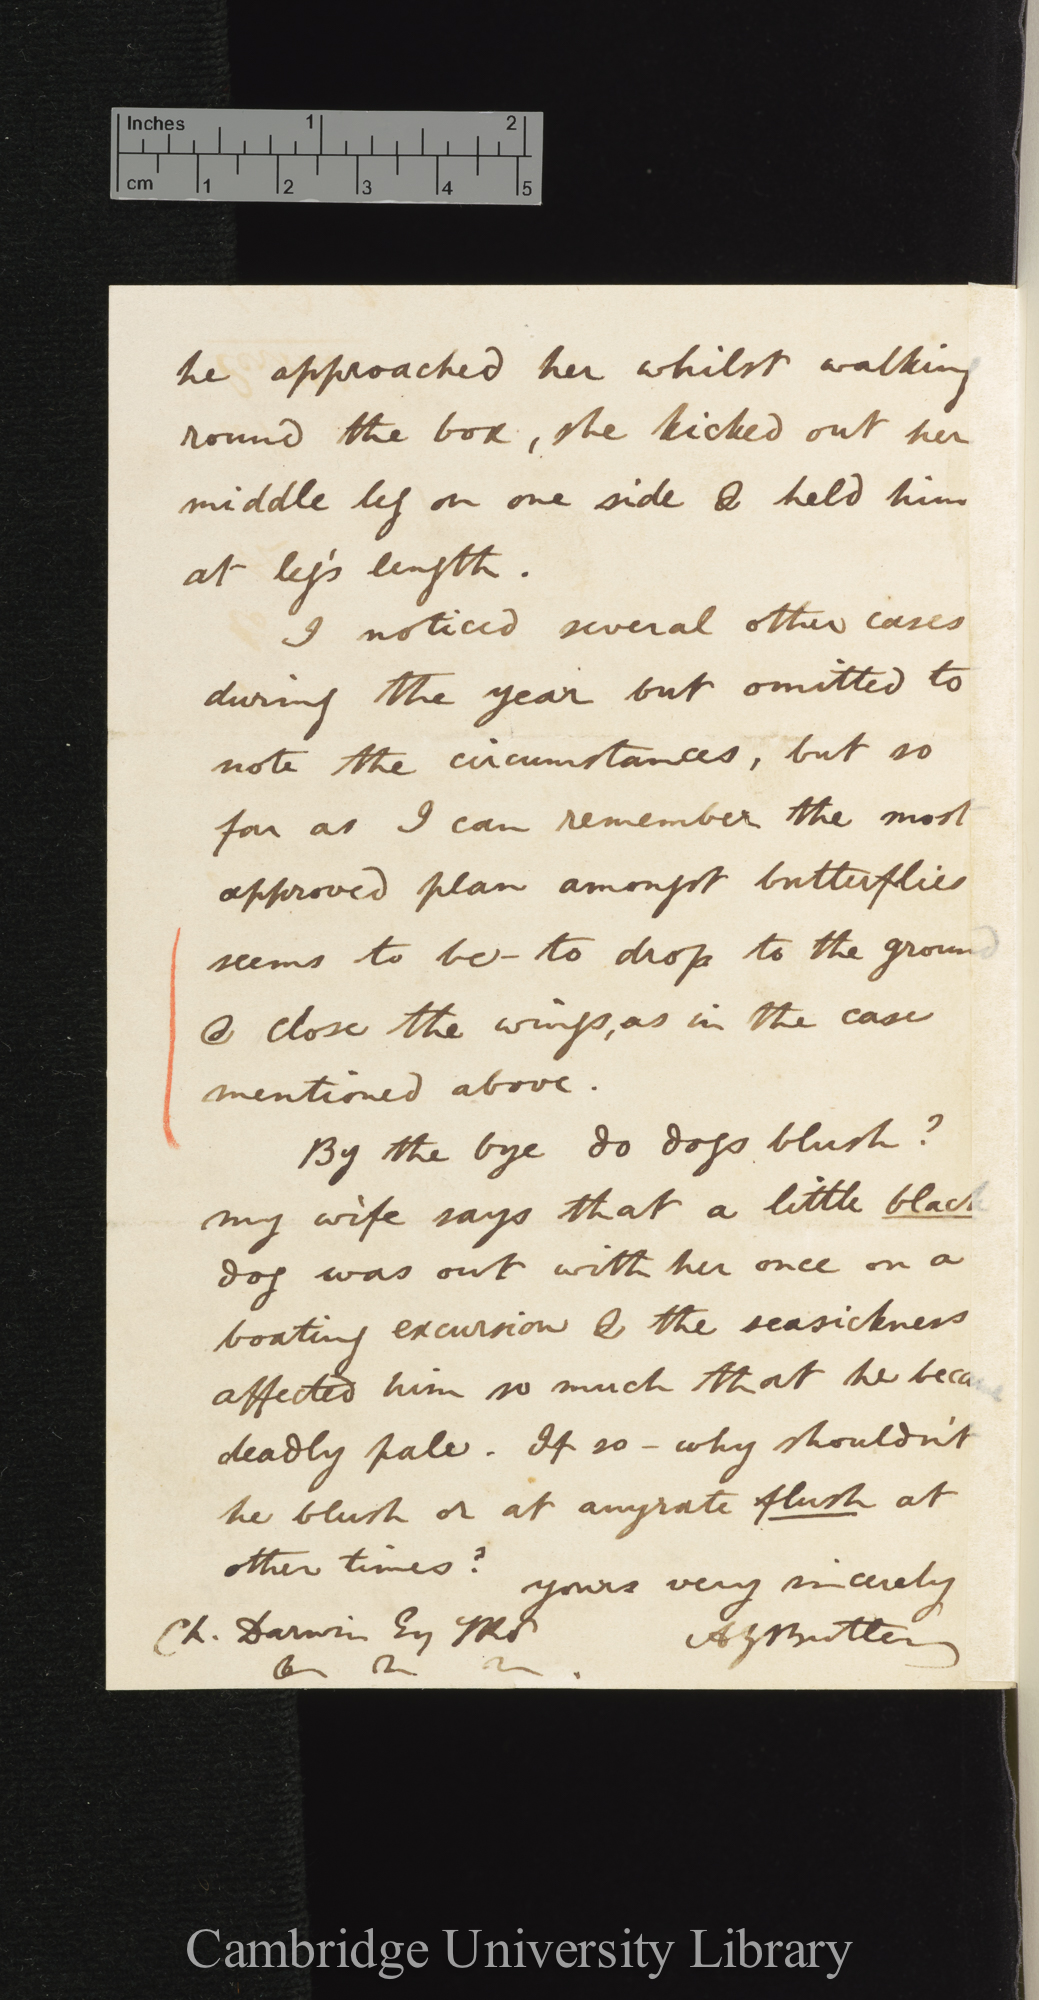 Inches 1 2
cm 1 2 3 4 5
he approached her whilst walking
round the box, she kicked out her
middle leg on one side & held him
at leg's length.
I noticed several other cases
during the year but omitted to
note the circumstances, but so
far as I can remember the most
approved plan amongst butterflies
seems to be – to drop to the ground
& close the wings, as in the case
mentioned above.
By the bye do dogs blush?
my wife says that a little black
dog was out with her once on a
boating excursion & the seasickness
affected him so much that he became
deadly pale. If so – why shouldn't
he blush or at anyrate flush at
other times?
yours very sincerely
Ch. Darwin Esq
AGButler
Cambridge University Library